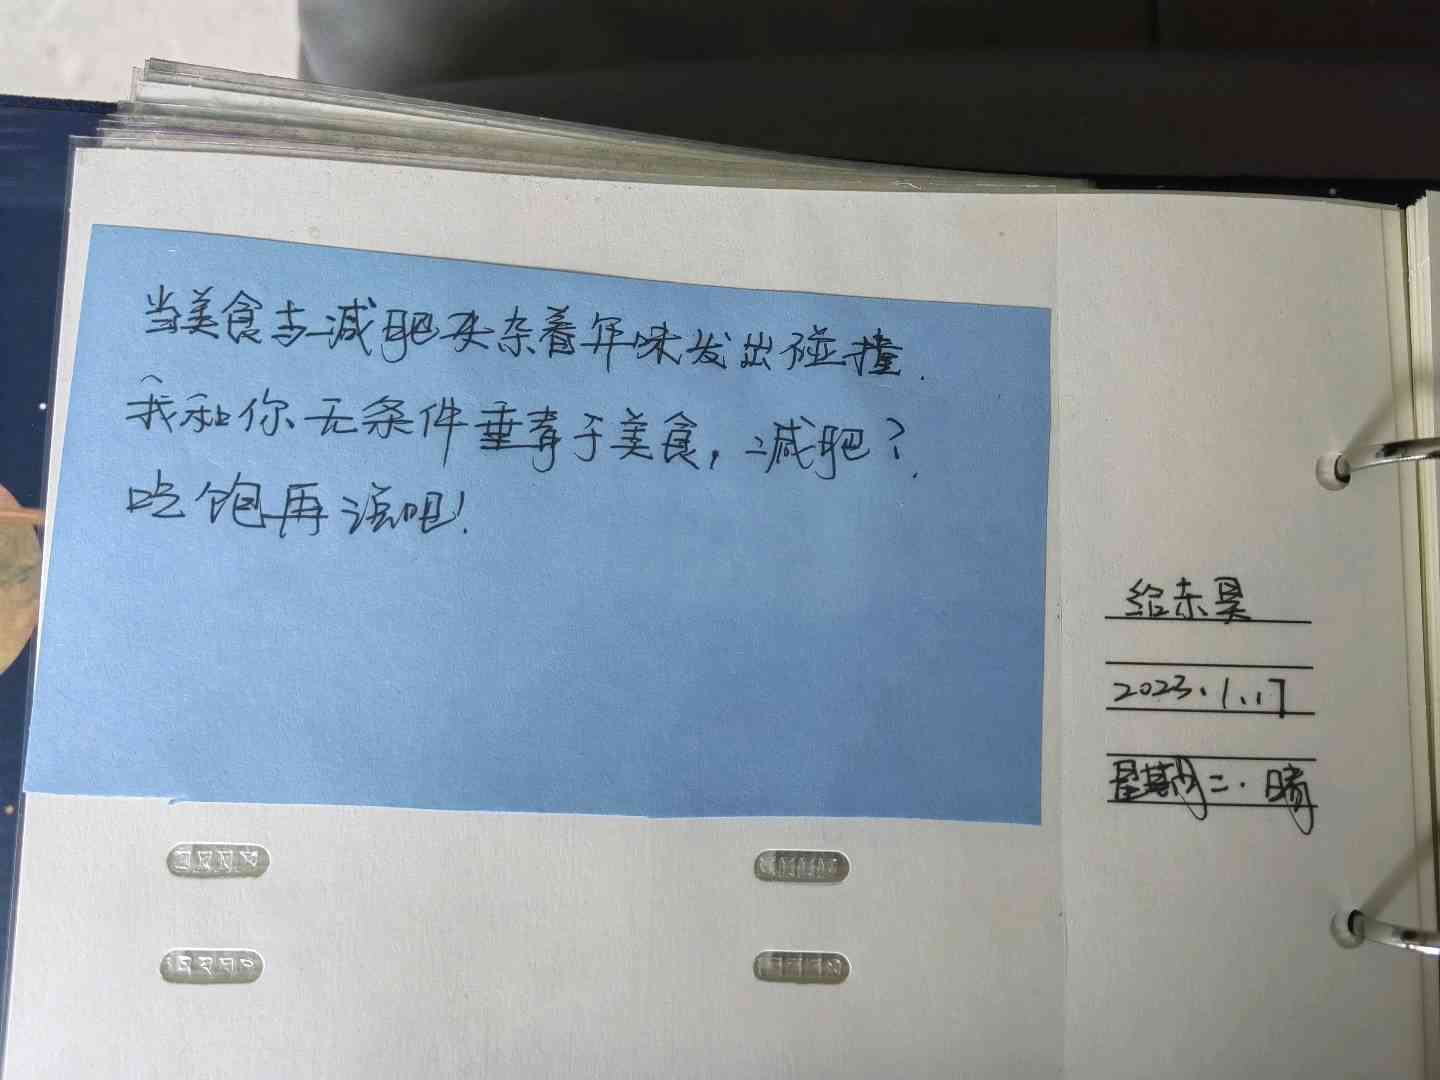 当美食与减肥夹杂着年味发出碰撞.
我和你无条件垂青于美食，减肥？
吃饱再说吧!
给东昊
2023.1.17
星期二.晴